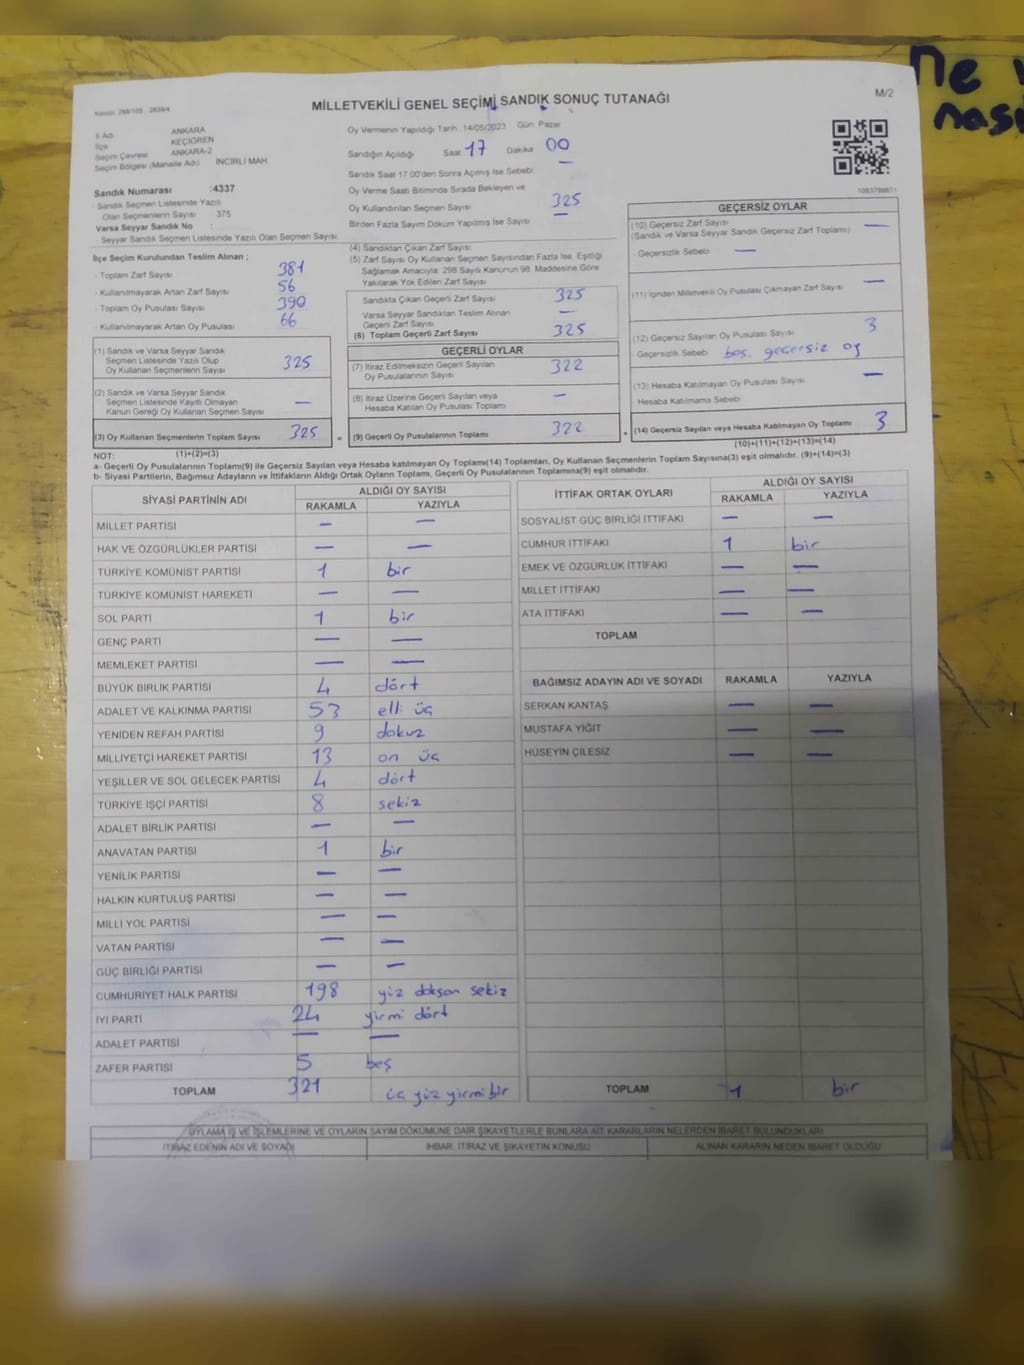 Ne
nası
M/2
MİLLETVEKİLİ GENEL SEÇİMİ SANDIK SONUÇ TUTANAĞI
İl Adı ANKARA
İlçe KEÇİÖREN
Seçim Çevresi ANKARA-2
Seçim Bölgesi (Mahalle Adı) İNCİRLİ MAH
Sandık Numarası :4337
Sandık Seçmen Listesinde Yazılı
Olan Seçmenlerin Sayısı 375
Varsa Seyyar Sandık No :
Seyyar Sandık Seçmen Listesinde Yazılı Olan Seçmen Sayısı
Oy Vermenin Yapıldığı Tarih : 14/05/2023 Gün: Pazar
Sandığın Açıldığı Saat 17 Dakika 00
Sandık Saat 17:00'den Sonra Açımış İse Sebebi —
Oy Verme Saati Bitiminde Sırada Bekleyen ve
Oy Kullandırılan Seçmen Sayısı 325
Birden Fazla Sayım Döküm Yapılmış İse Sayısı —
İlçe Seçim Kurulundan Teslim Alınan ;
- Toplam Zarf Sayısı 381
- Kullanılmayarak Artan Zarf Sayısı 56
- Toplam Oy Pusulası Sayısı 390
- Kullanılmayarak Artan Oy Pusulası 66
(1) Sandık ve Varsa Seyyar Sandık
Seçmen Listesinde Yazılı Olup
Oy Kullanan Seçmenlerin Sayısı 325
(2) Sandık ve Varsa Seyyar Sandık
Seçmen Listesinde Kayıtlı Olmayan
Kanun Gereği Oy Kullanan Seçmen Sayısı —
(3) Oy Kullanan Seçmenlerin Toplam Sayısı 325 =
(1)+(2)=(3)
(4) Sandıktan Çıkan Zarf Sayısı
(5) Zarf Sayısı Oy Kullanan Seçmen Sayısından Fazla İse, Eşitliği
Sağlamak Amacıyla, 298 Sayılı Kanunun 98. Maddesine Göre
Yakılarak Yok Edilen Zarf Sayısı
Sandıkta Çıkan Geçerli Zarf Sayısı 325
Varsa Seyyar Sandıktan Teslim Alınan
Geçerli Zarf Sayısı —
(6) Toplam Geçerli Zarf Sayısı 325
GEÇERLİ OYLAR
(7) İtiraz Edilmeksizin Geçerli Sayılan
Oy Pusulalarının Sayısı 322
(8) İtiraz Üzerine Geçerli Sayılan veya
Hesaba Katılan Oy Pusulası Toplamı —
(9) Geçerli Oy Pusulalarının Toplamı 322 +
GEÇERSİZ OYLAR
(10) Geçersiz Zarf Sayısı —
(Sandık ve Varsa Seyyar Sandık Geçersiz Zarf Toplamı)
- Geçersizlik Sebebi —
(11) İçinden Milletvekili Oy Pusulası Çıkmayan Zarf Sayısı —
(12) Geçersiz Sayılan Oy Pusulası Sayısı 3
- Geçersizlik Sebebi boş, geçersiz oy
(13) Hesaba Katılmayan Oy Pusulası Sayısı —
- Hesaba Katılmama Sebebi
(14) Geçersiz Sayılan veya Hesaba Katılmayan Oy Toplamı 3
(10)+(11)+(12)+(13)=(14)
NOT:
a- Geçerli Oy Pusulalarının Toplamı(9) ile Geçersiz Sayılan veya Hesaba katılmayan Oy Toplamı(14) Toplamları, Oy Kullanan Seçmenlerin Toplam Sayısına(3) eşit olmalıdır. (9)+(14)=(3)
b- Siyasi Partilerin, Bağımsız Adayların ve İttifakların Aldığı Ortak Oyların Toplamı, Geçerli Oy Pusulalarının Toplamına(9) eşit olmalıdır.
SİYASİ PARTİNİN ADI ALDIĞI OY SAYISI
RAKAMLA YAZIYLA
MİLLET PARTİSİ — —
HAK VE ÖZGÜRLÜKLER PARTİSİ — —
TÜRKİYE KOMÜNİST PARTİSİ 1 bir
TÜRKİYE KOMÜNİST HAREKETİ — —
SOL PARTİ 1 bir
GENÇ PARTİ — —
MEMLEKET PARTİSİ — —
BÜYÜK BİRLİK PARTİSİ 4 dört
ADALET VE KALKINMA PARTİSİ 53 elli üç
YENİDEN REFAH PARTİSİ 9 dokuz
MİLLİYETÇİ HAREKET PARTİSİ 13 on üç
YEŞİLLER VE SOL GELECEK PARTİSİ 4 dört
TÜRKİYE İŞÇİ PARTİSİ 8 sekiz
ADALET BİRLİK PARTİSİ — —
ANAVATAN PARTİSİ 1 bir
YENİLİK PARTİSİ — —
HALKIN KURTULUŞ PARTİSİ — —
MİLLİ YOL PARTİSİ — —
VATAN PARTİSİ — —
GÜÇ BİRLİĞİ PARTİSİ — —
CUMHURİYET HALK PARTİSİ 198 yüz doksan sekiz
İYİ PARTİ 24 yirmi dört
ADALET PARTİSİ — —
ZAFER PARTİSİ 5 beş
TOPLAM 321 üç yüz yirmi bir
İTTİFAK ORTAK OYLARI ALDIĞI OY SAYISI
RAKAMLA YAZIYLA
SOSYALİST GÜÇ BİRLİĞİ İTTİFAKI — —
CUMHUR İTTİFAKI 1 bir
EMEK VE ÖZGÜRLÜK İTTİFAKI — —
MİLLET İTTİFAKI — —
ATA İTTİFAKI — —
TOPLAM
BAĞIMSIZ ADAYIN ADI VE SOYADI RAKAMLA YAZIYLA
SERKAN KANTAŞ — —
MUSTAFA YİĞİT — —
HÜSEYİN ÇİLESİZ — —
TOPLAM 1 bir
OYLAMA İŞ VE İŞLEMLERİNE VE OYLARIN SAYIM DÖKÜMÜNE DAİR ŞİKAYETLERLE BUNLARA AİT KARARLARIN NELERDEN İBARET BULUNDUKLARI
İTİRAZ EDENİN ADI VE SOYADI İHBAR, İTİRAZ VE ŞİKAYETİN KONUSU ALINAN KARARIN NEDEN İBARET OLDUĞU